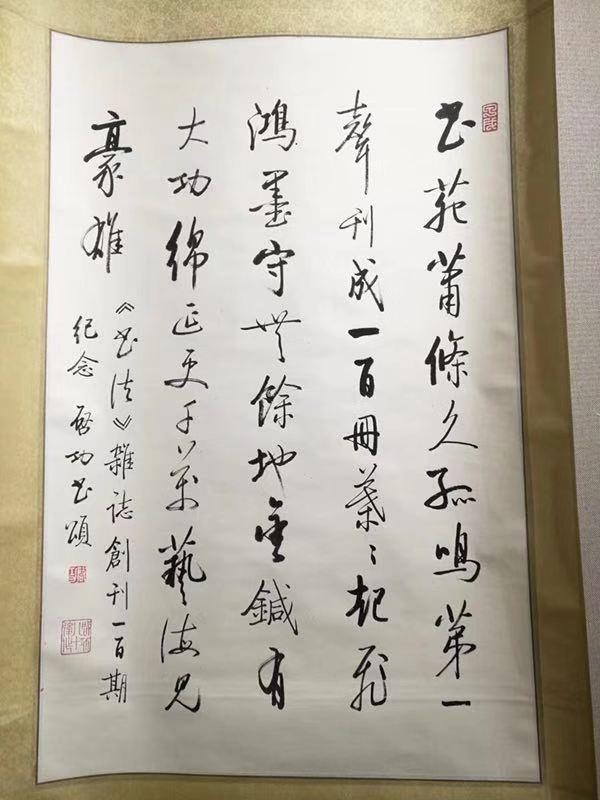 书苑蕭條久孤鳴第一
聲刊成一百冊葉〻起飛
鴻墨守無餘地金鍼有
大功綿延更千萬藝海見
豪雄
《书法》雜誌創刊一百期
紀念 啟功书頌